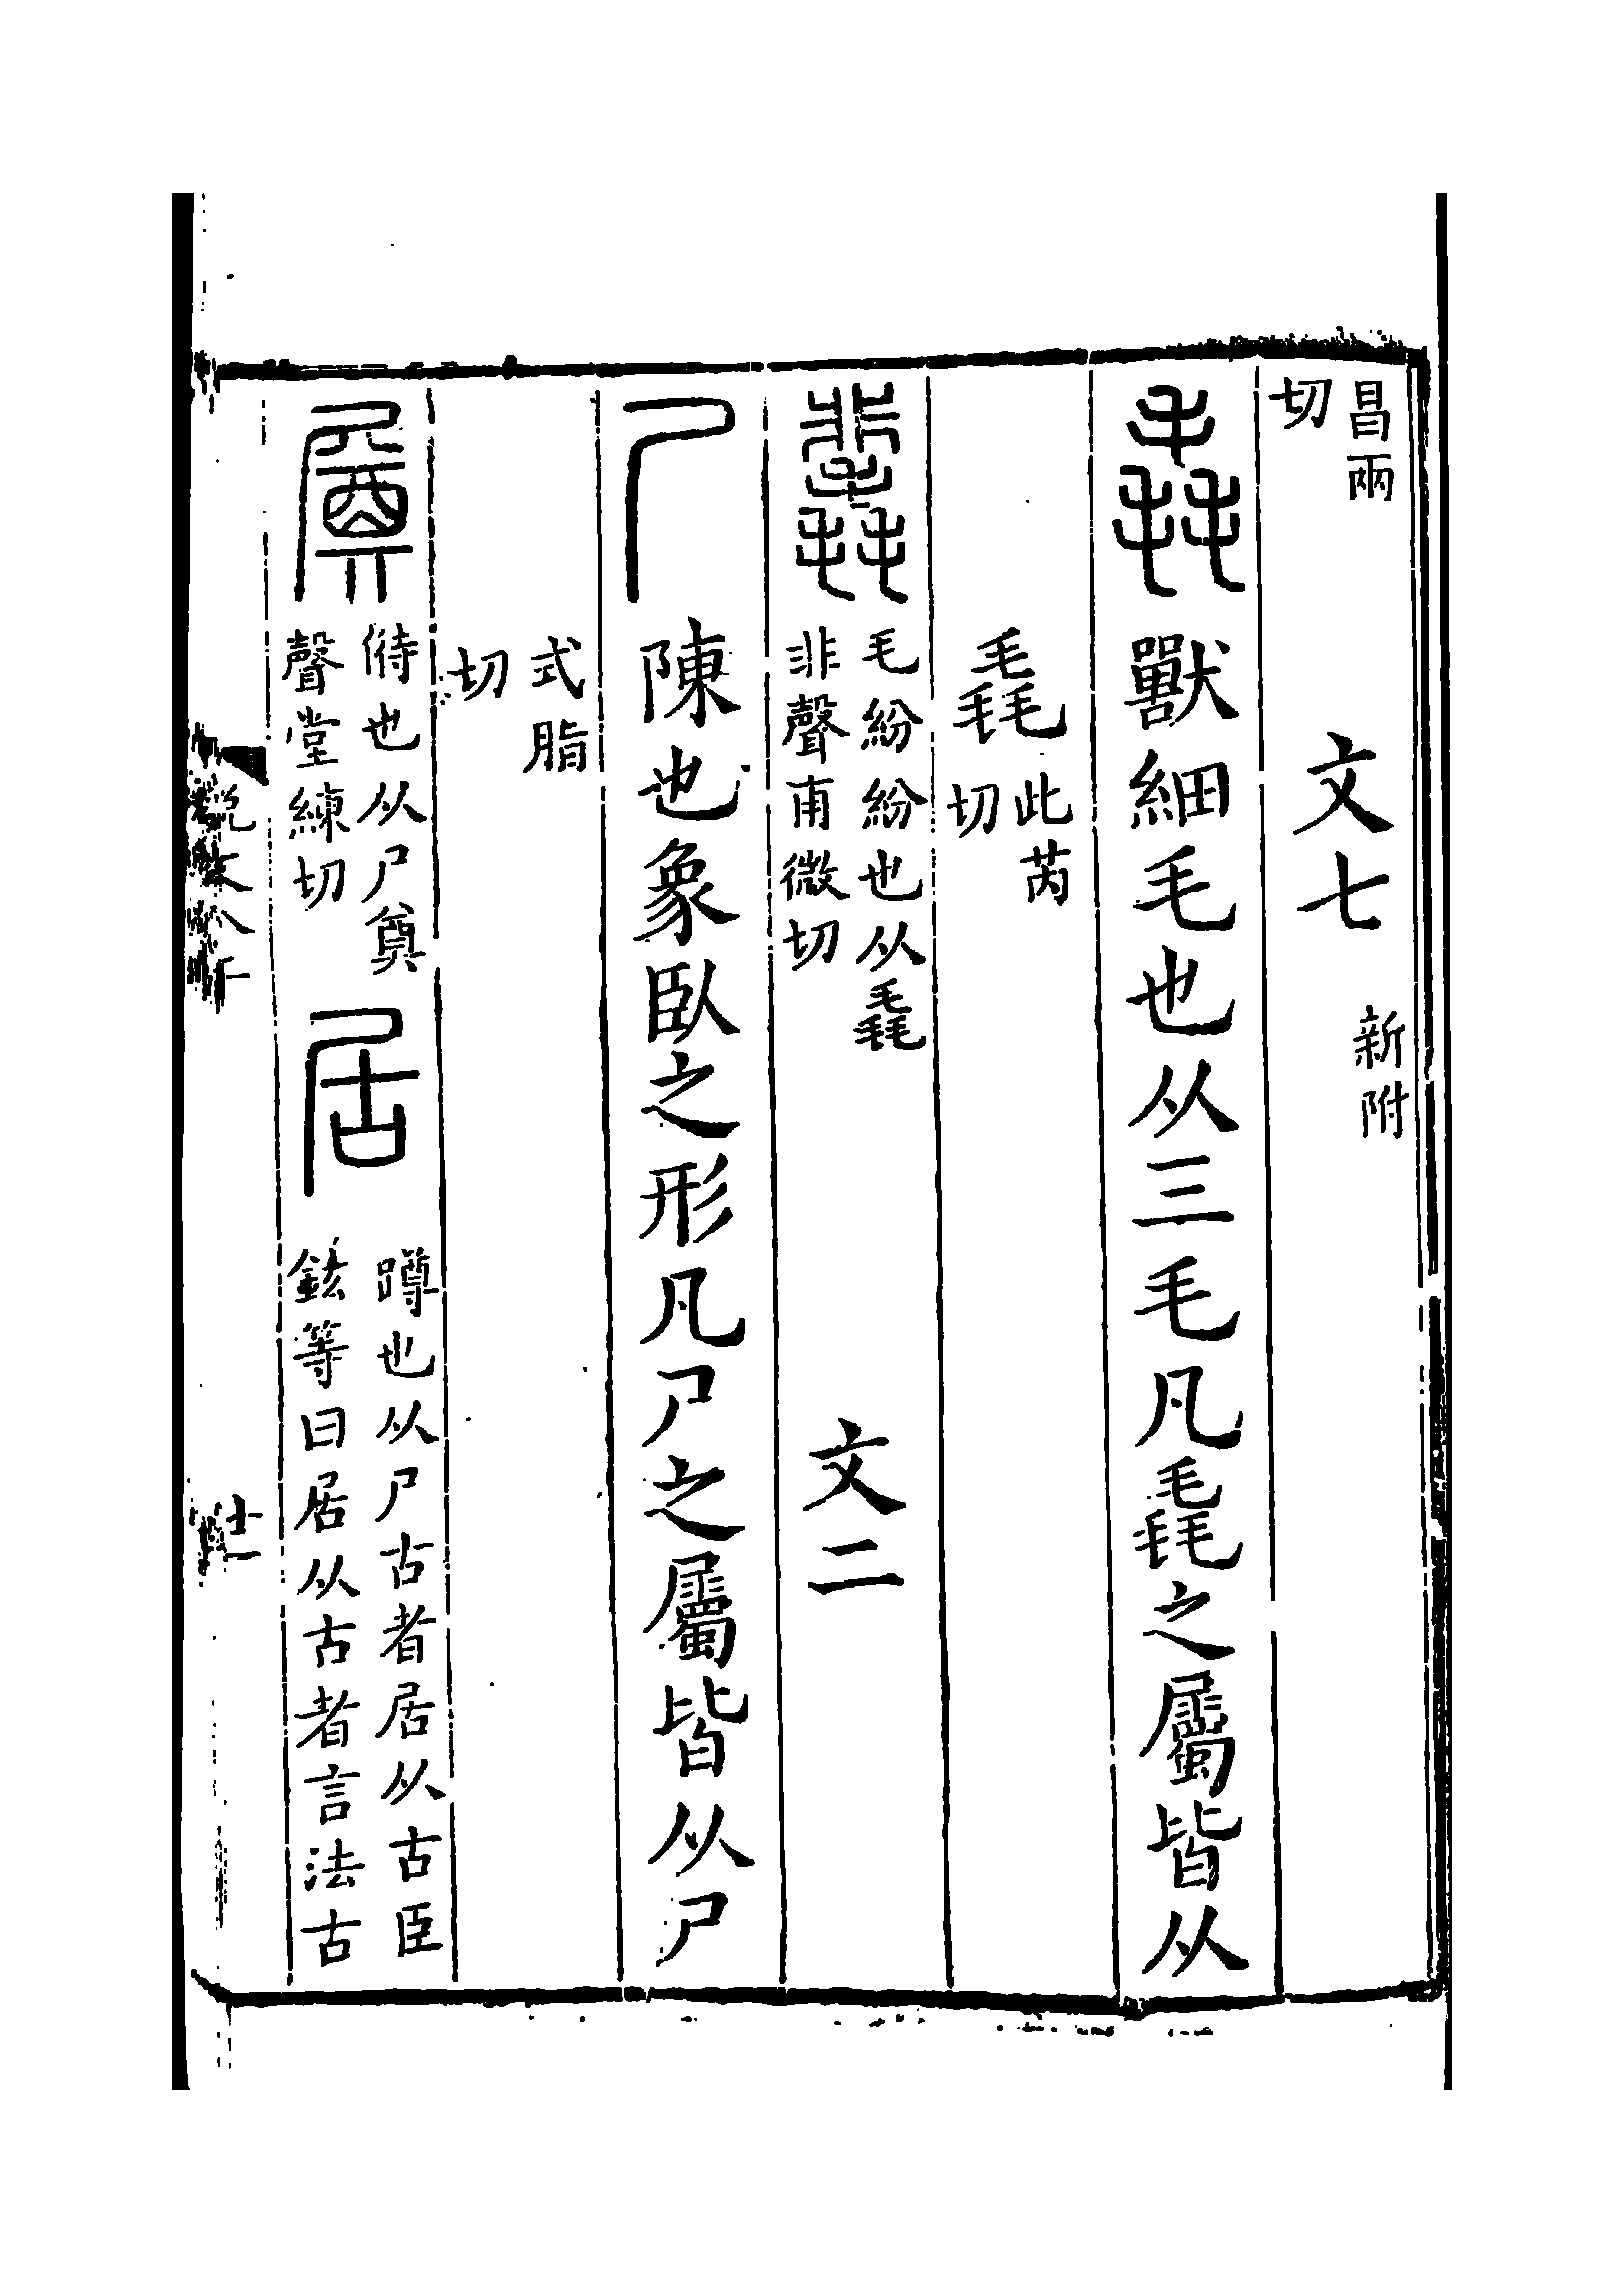 昌兩
切
文七
新附
毳 獸細毛也从三毛凡毳之屬皆从
毳 此芮
切
𣯍 毛紛紛也从毳
非聲甫微切
文二
尸 陳也象臥之形凡尸之屬皆从尸
式脂
切
𡱒 偫也从尸奠
聲堂練切
居 蹲也从尸古者居从古臣
鉉等曰居从古者言法古
說文八上
十一